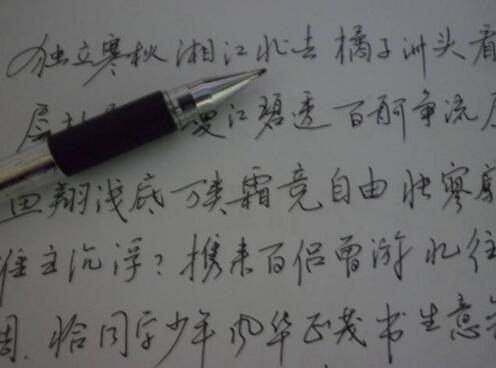 独立寒秋 湘江北去 橘子洲头 看
层 漫江碧透 百舸争流
翔浅底 万类霜竞自由 怅寥廓
谁主沉浮？携来百侣曾游 忆往
稠. 恰同学少年 风华正茂 书生意